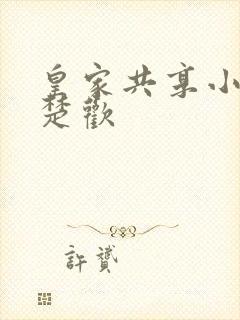 皇家共享小
楚歡
許贊